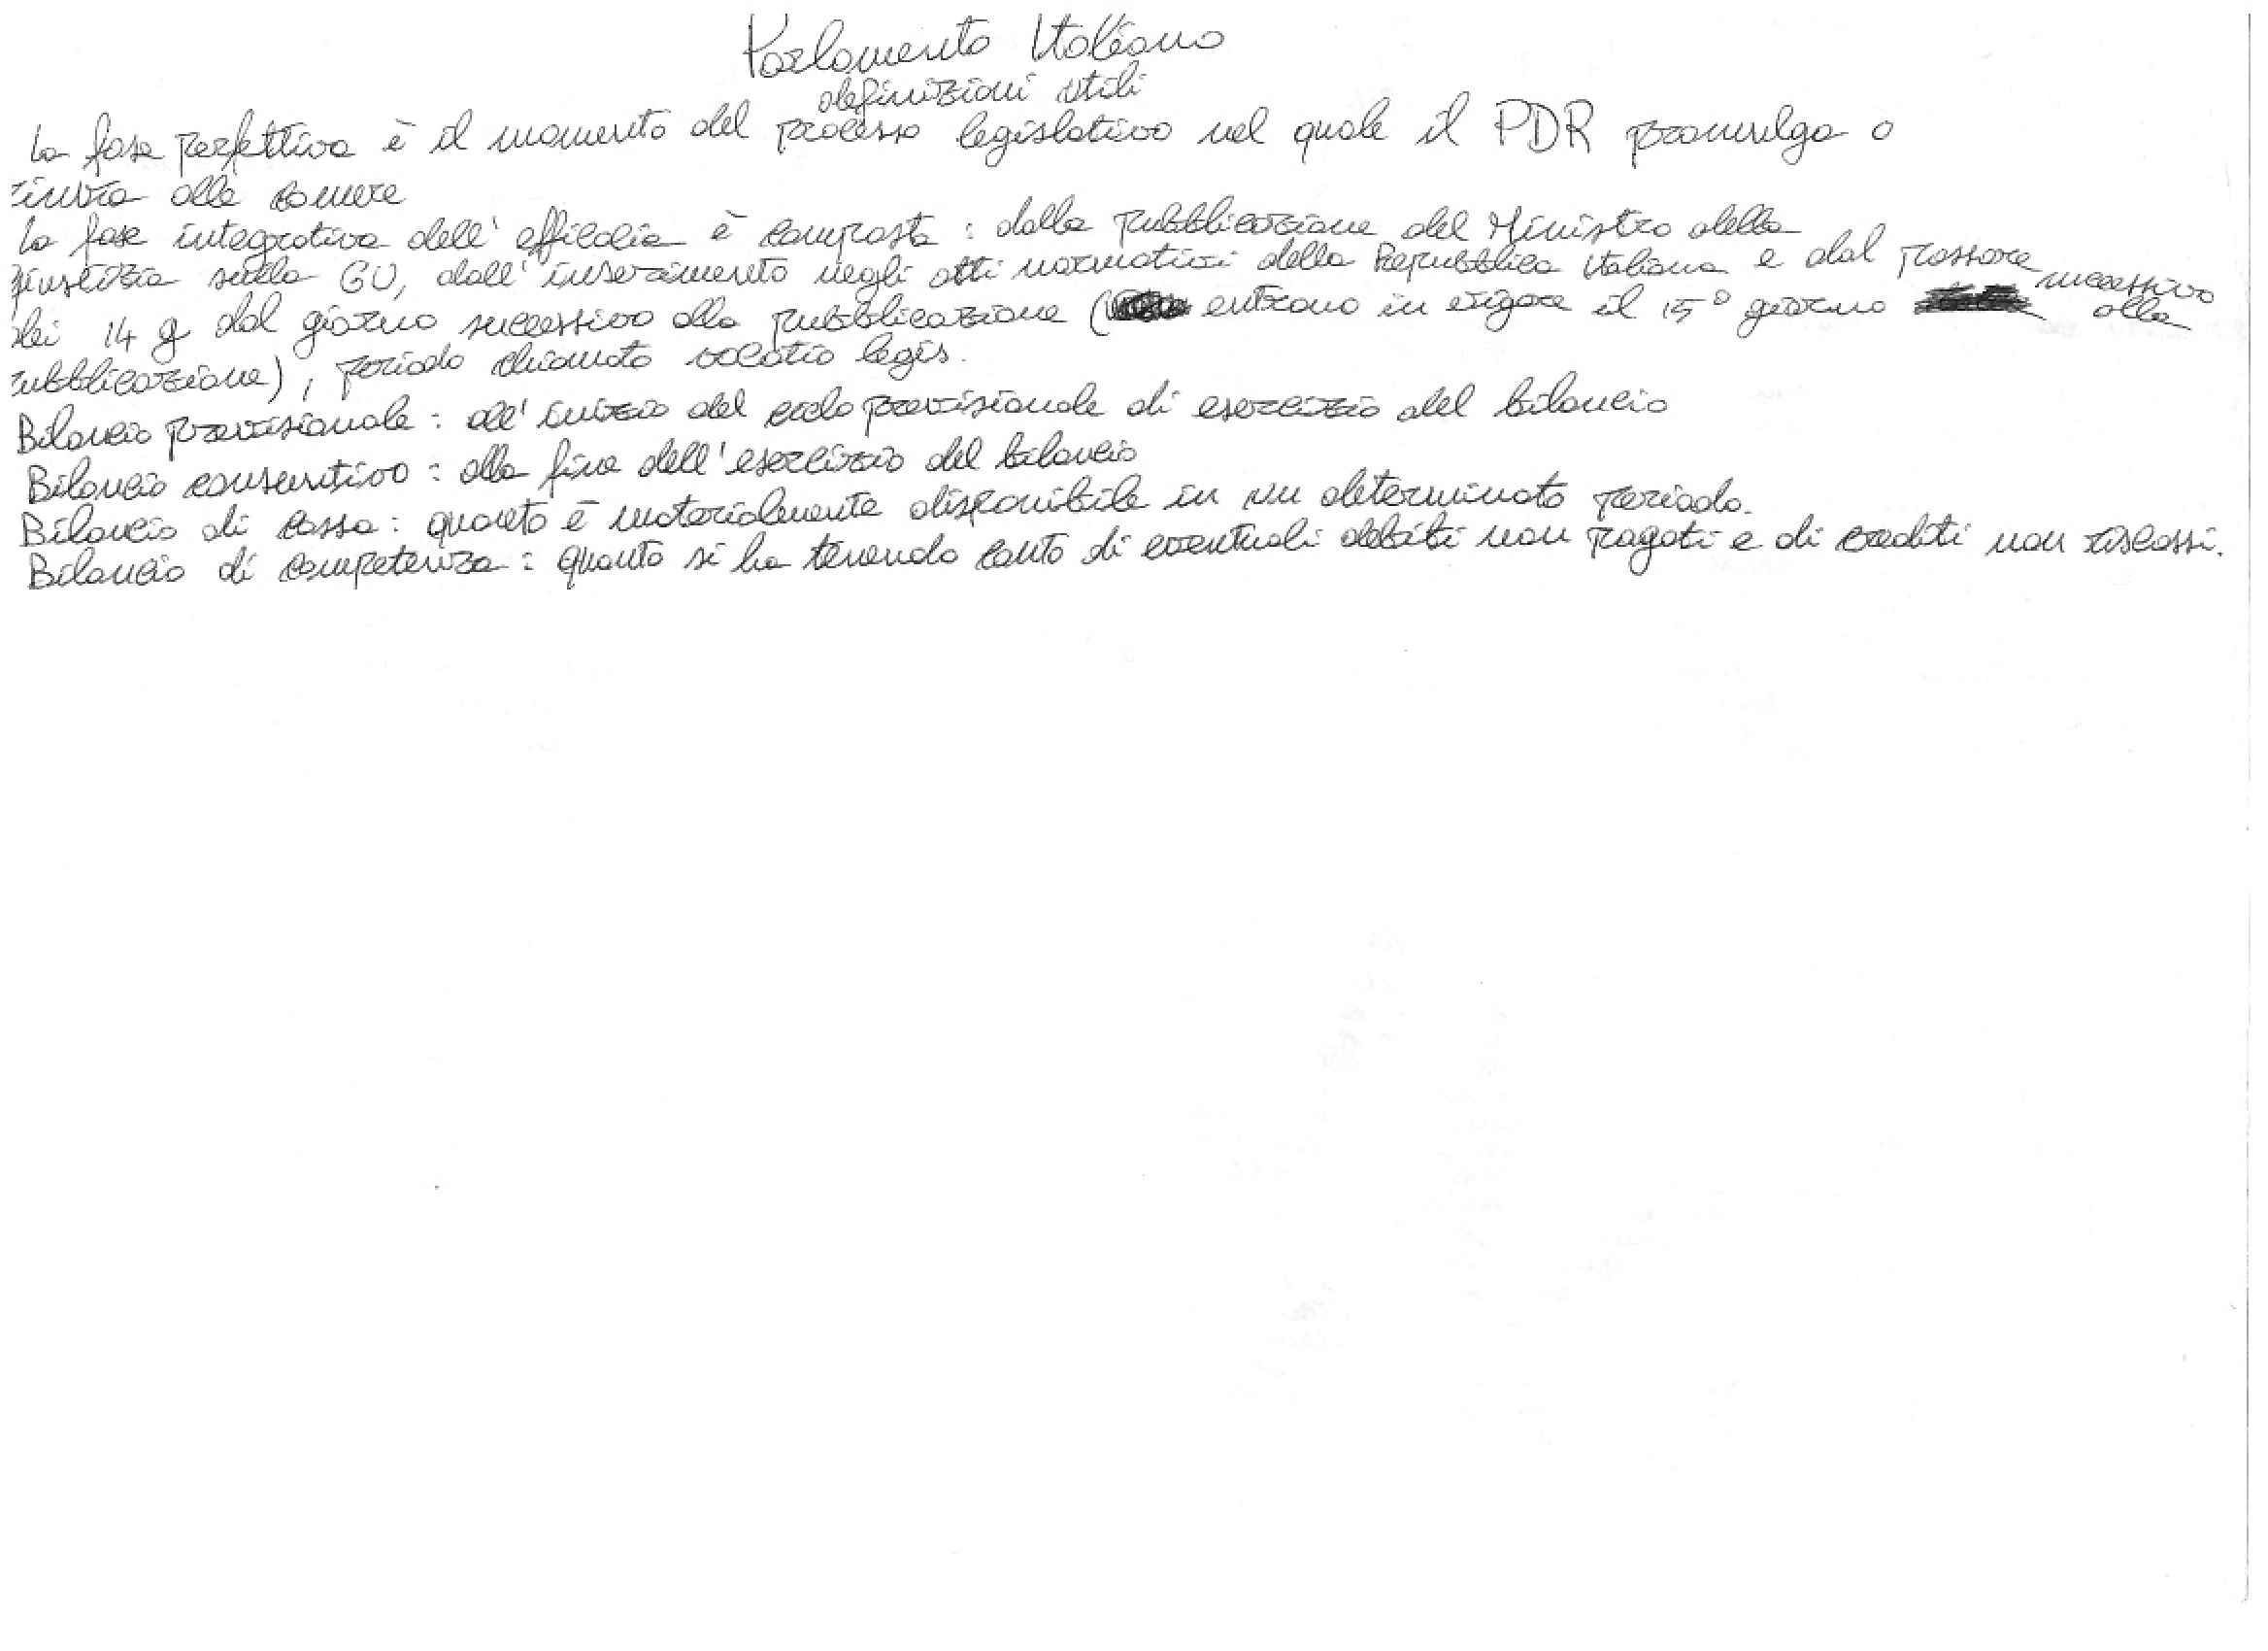 Parlamento Italiano
definizioni utili
La fase perfettiva è il momento del processo legislativo nel quale il PDR promulga o
rinvia alle camere
La fase integrativa dell'efficacia è composta: dalla pubblicazione del Ministro della
giustizia sulla GU, dall'inserimento negli atti normativi della Repubblica Italiana e dal passare
dei 14 g dal giorno successivo alla pubblicazione ( entrano in vigore il 15° giorno successivo alla
pubblicazione), periodo chiamato vacatio legis.
Bilancio previsionale: all'inizio del ciclo previsionale di esercizio del bilancio
Bilancio consuntivo: alla fine dell'esercizio del bilancio
Bilancio di cassa: quanto è materialmente disponibile in un determinato periodo.
Bilancio di competenza: quanto si ha tenendo conto di eventuali debiti non pagati e di crediti non riscossi.